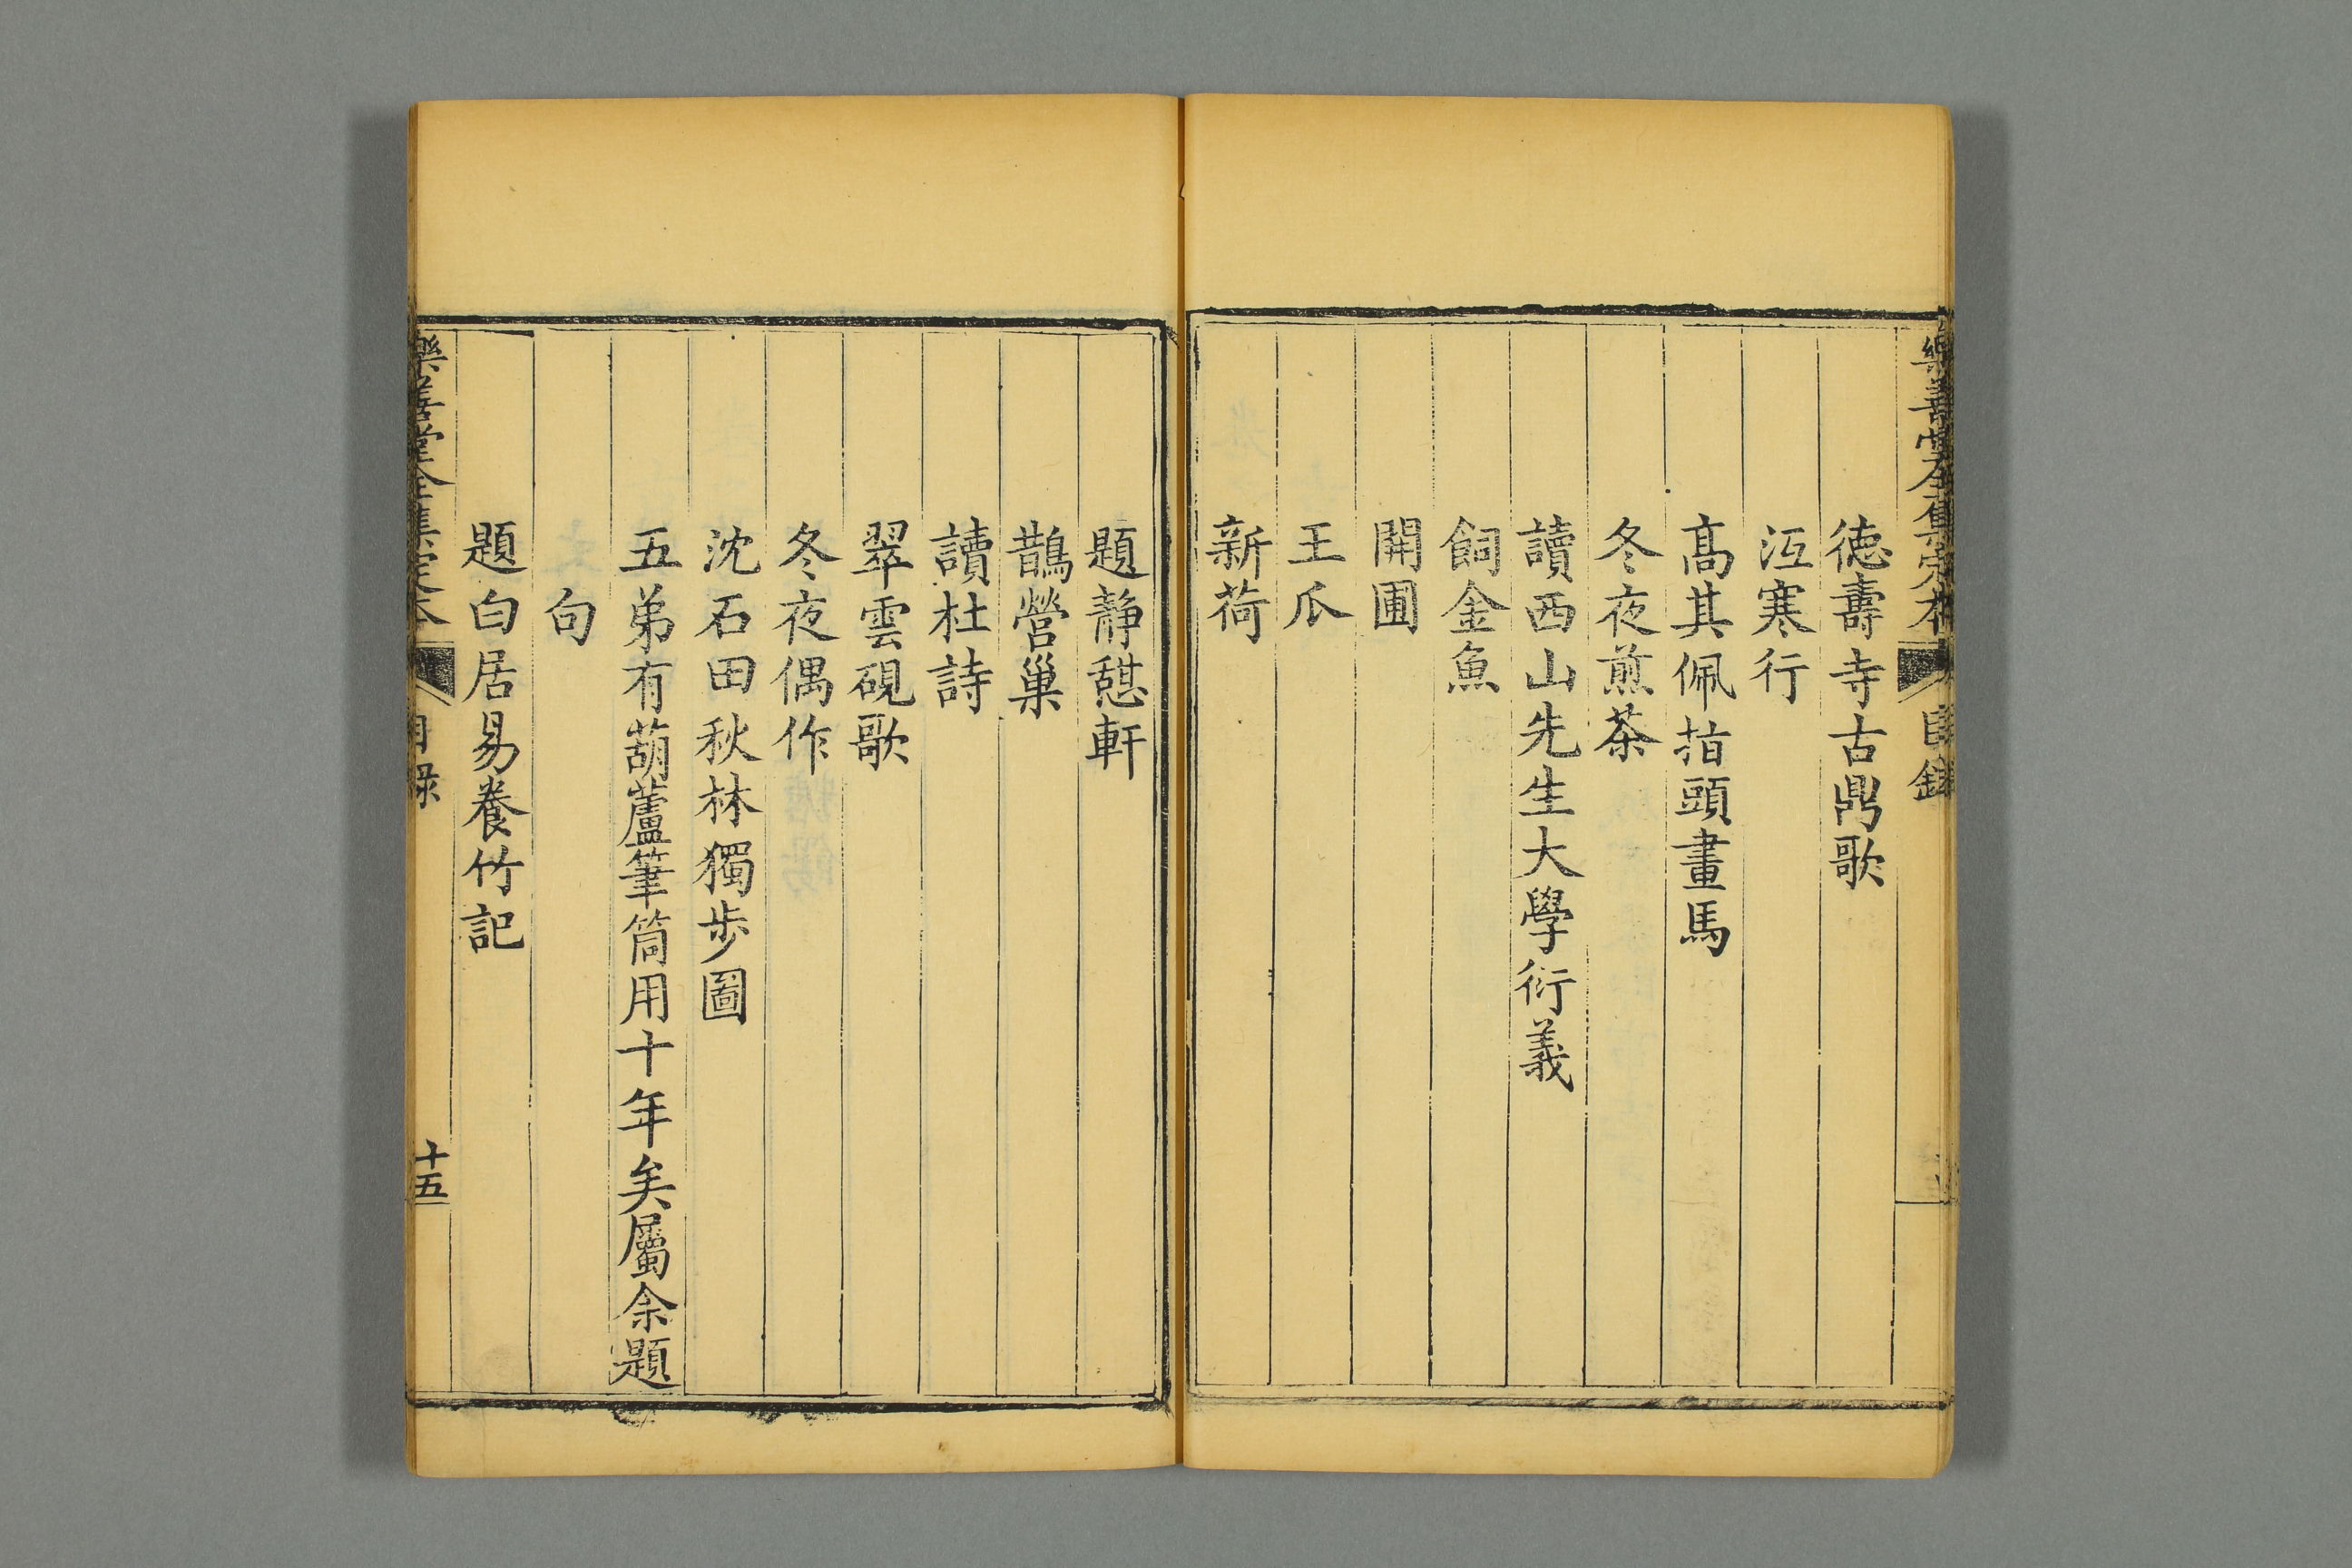 樂善堂全集定本 目録
德壽寺古鼎歌
沍寒行
高其佩指頭畫馬
冬夜煎茶
讀西山先生大學衍義
飼金魚
開圃
王瓜
新荷
題靜憇軒
鵲營巢
讀杜詩
翠雲硯歌
冬夜偶作
沈石田秋林獨步圖
五弟有葫蘆筆筒用十年矣屬余題
句
題白居易養竹記
樂善堂全集定本 目録 十五